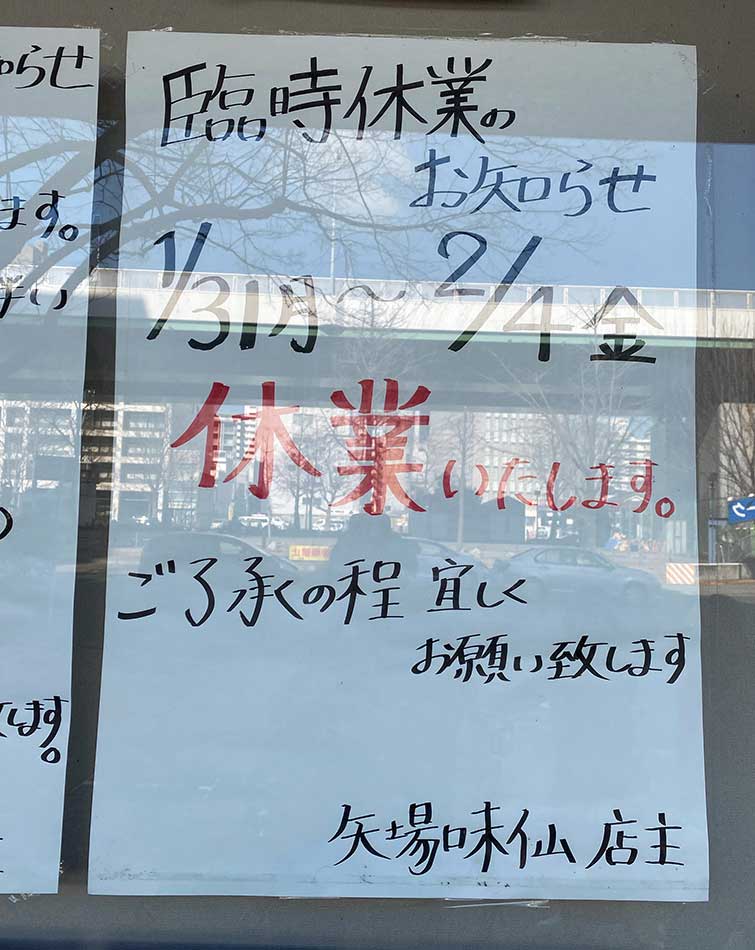 臨時休業の
お知らせ
1/31月～2/4金
休業いたします。
ご了承くの程 宜しく
お願い致します
矢場味仙 店主
らせ
ます。
します。